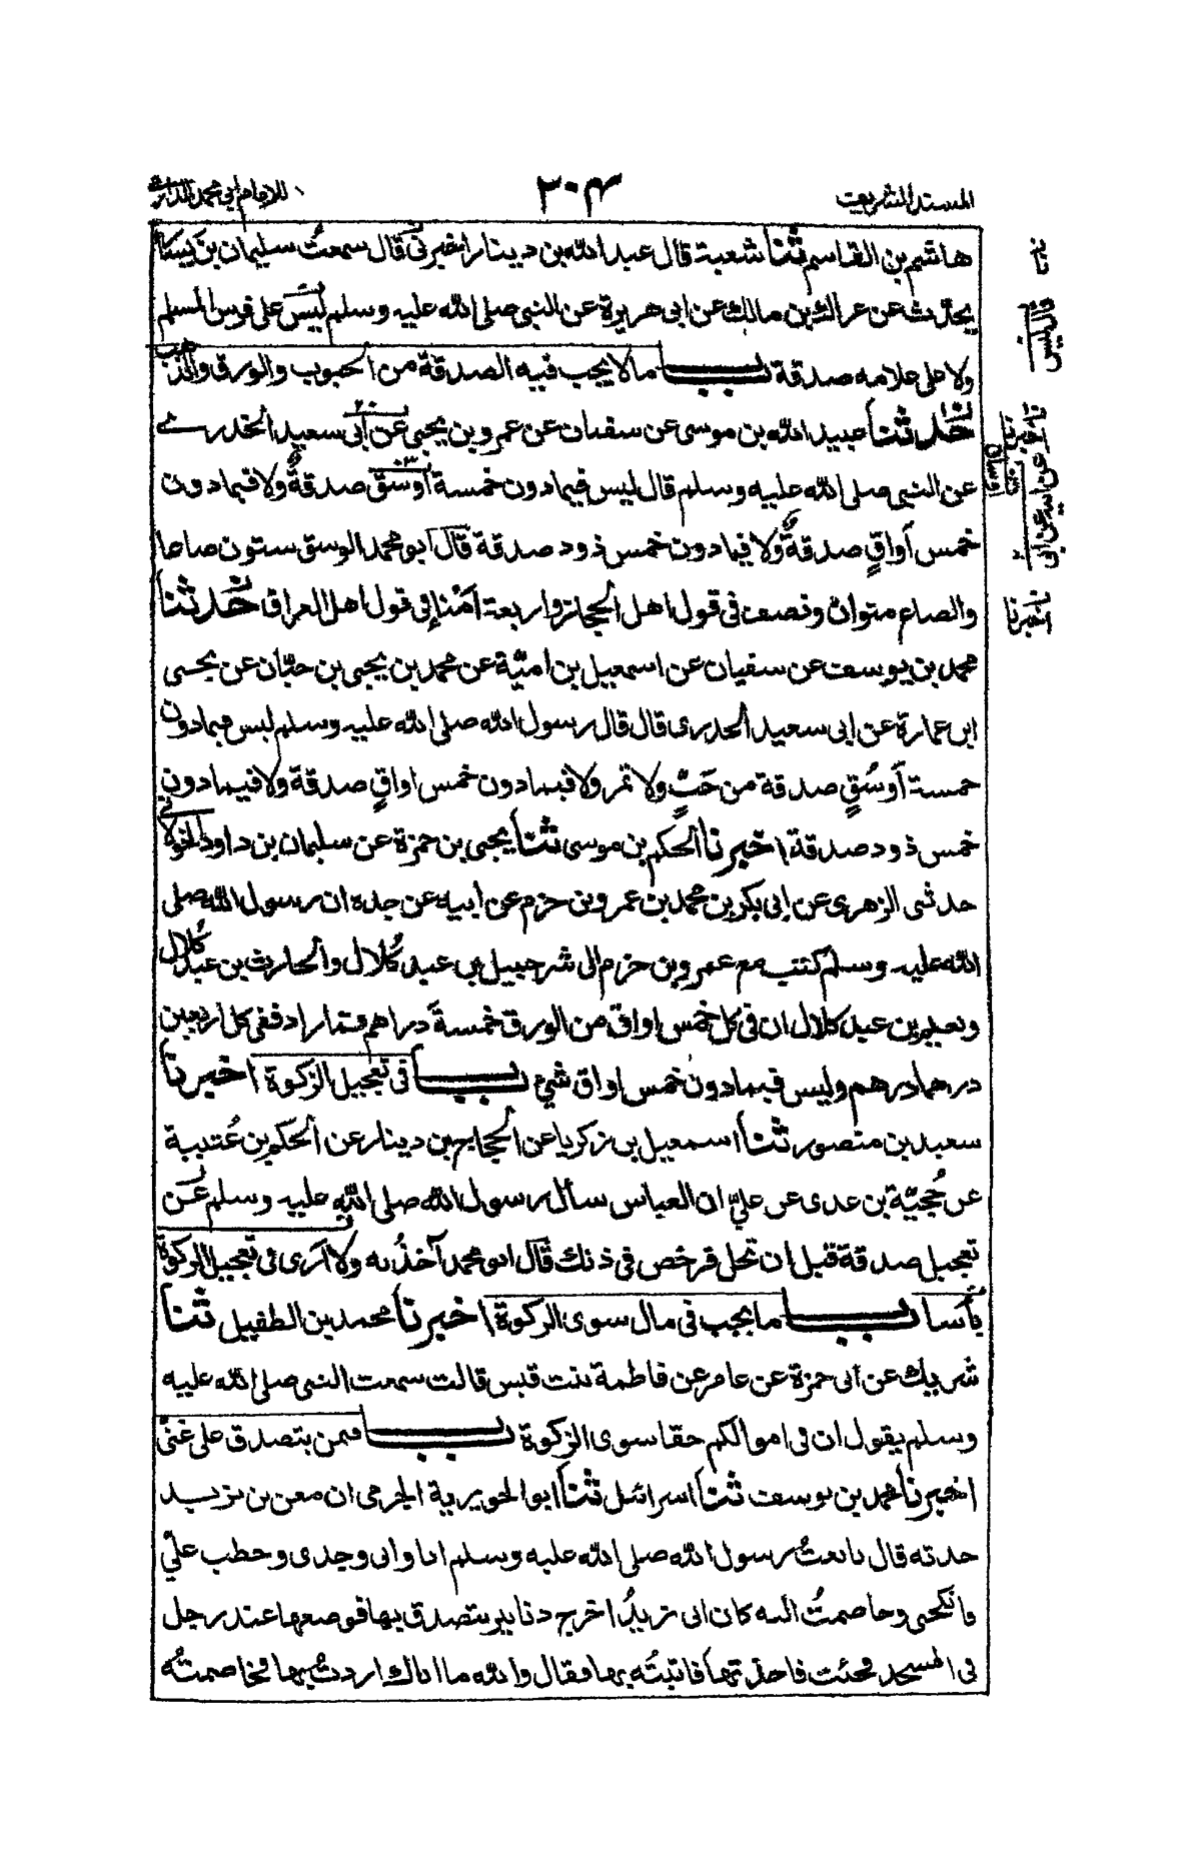 المسند الشريعت
٢٠٤
للامام ابي محمد الدارمي
هاشم بن القاسم ثنا شعبة قال عبد الله بن دينار اخبرني قال سمعتُ سليمان بن يسار
يحدث عن عراك بن مالك عن ابى هريرة عن النبي صلى الله عليه وسلم ليس على فرس المسلم
ولا على غلامه صدقة باب ما لا يجب فيه الصدقة من الحبوب والورق والذهب
حدثنا عبيد الله بن موسى عن سفيان عن عمرو بن يحيى عن ابى سعيد الخدرى
عن النبي صلى الله عليه وسلم قال ليس فيما دون خمسة اوسق صدقةٌ ولا فيما دون
خمس أواقٍ صدقةٌ ولا فيما دون خمس ذود صدقة قال ابو محمد الوسق ستون صاعا
والصاع منوان ونصف في قول اهل الحجاز واربعة امنٰاءٍ في قول اهل العراق حدثنا
محمد بن يوسف عن سفيان عن اسمعيل بن اميّة عن محمد بن يحيى بن حبّان عن يحيى
ابن عمارة عن ابى سعيد الخدرى قال قال رسول الله صلى الله عليه وسلم ليس فيما دون
خمسة أوسُقٍ صدقة من حَبٍّ ولا تمر ولا فيما دون خمس اواقٍ صدقة ولا فيما دون
خمس ذود صدقة اخبرنا الحكم بن موسى ثنا يحيى بن حمزة عن سليمان بن داود الخولاني
حدثنى الزهرى عن ابى بكر بن محمد بن عمرو بن حزم عن ابيه عن جده ان رسول الله صلى
الله عليه وسلم كتب مع عمرو بن حزم الى شرحبيل بن عبد كُلال والحارث بن عبد كُلال
ونعيم بن عبد كلال ان في كل خمس اواق من الورق خمسةَ دراهم فما زاد ففى كل اربعين
درهما درهم وليس فيما دون خمس اواق شيء باب في تعجيل الزكوة اخبرنا
سعيد بن منصور ثنا اسمعيل بن زكريا عن الحجاج بن دينار عن الحكم بن عُتيبة
عن حُجيّة بن عدى عن عليّ ان العباس سأل رسول الله صلى الله عليه وسلم عن
تعجيل صدقة قبل ان تحل فرخص في ذلك قال ابو محمد آخذُ به ولا آرى في تعجيل الزكوة
بأسا باب ما يجب في مال سوى الزكوة اخبرنا محمد بن الطفيل ثنا
شريك عن ابى حمزة عن عامر عن فاطمة بنت قيس قالت سمعت النبي صلى الله عليه
وسلم يقول ان في اموالكم حقا سوى الزكوة باب فيمن يتصدق على غنى
اخبرنا محمد بن يوسف ثنا اسرائيل ثنا ابو الحويرية الجرمى ان معن بن يزيد
حدثه قال بايعتُ رسول الله صلى الله عليه وسلم انا وابى وجدى وخطب عليّ
فانكحنى وخاصمتُ اليه كان ابى يزيدُ اخرج دنانير يتصدق بها فوضعها عند رجل
في المسجد فجئت فاخذتها فاتيتُه بها فقال والله ما اياك اردتُ بها فخاصمتُه
قال ليس
اخبرنا
عن ابيه عن ابى
اخبرنا